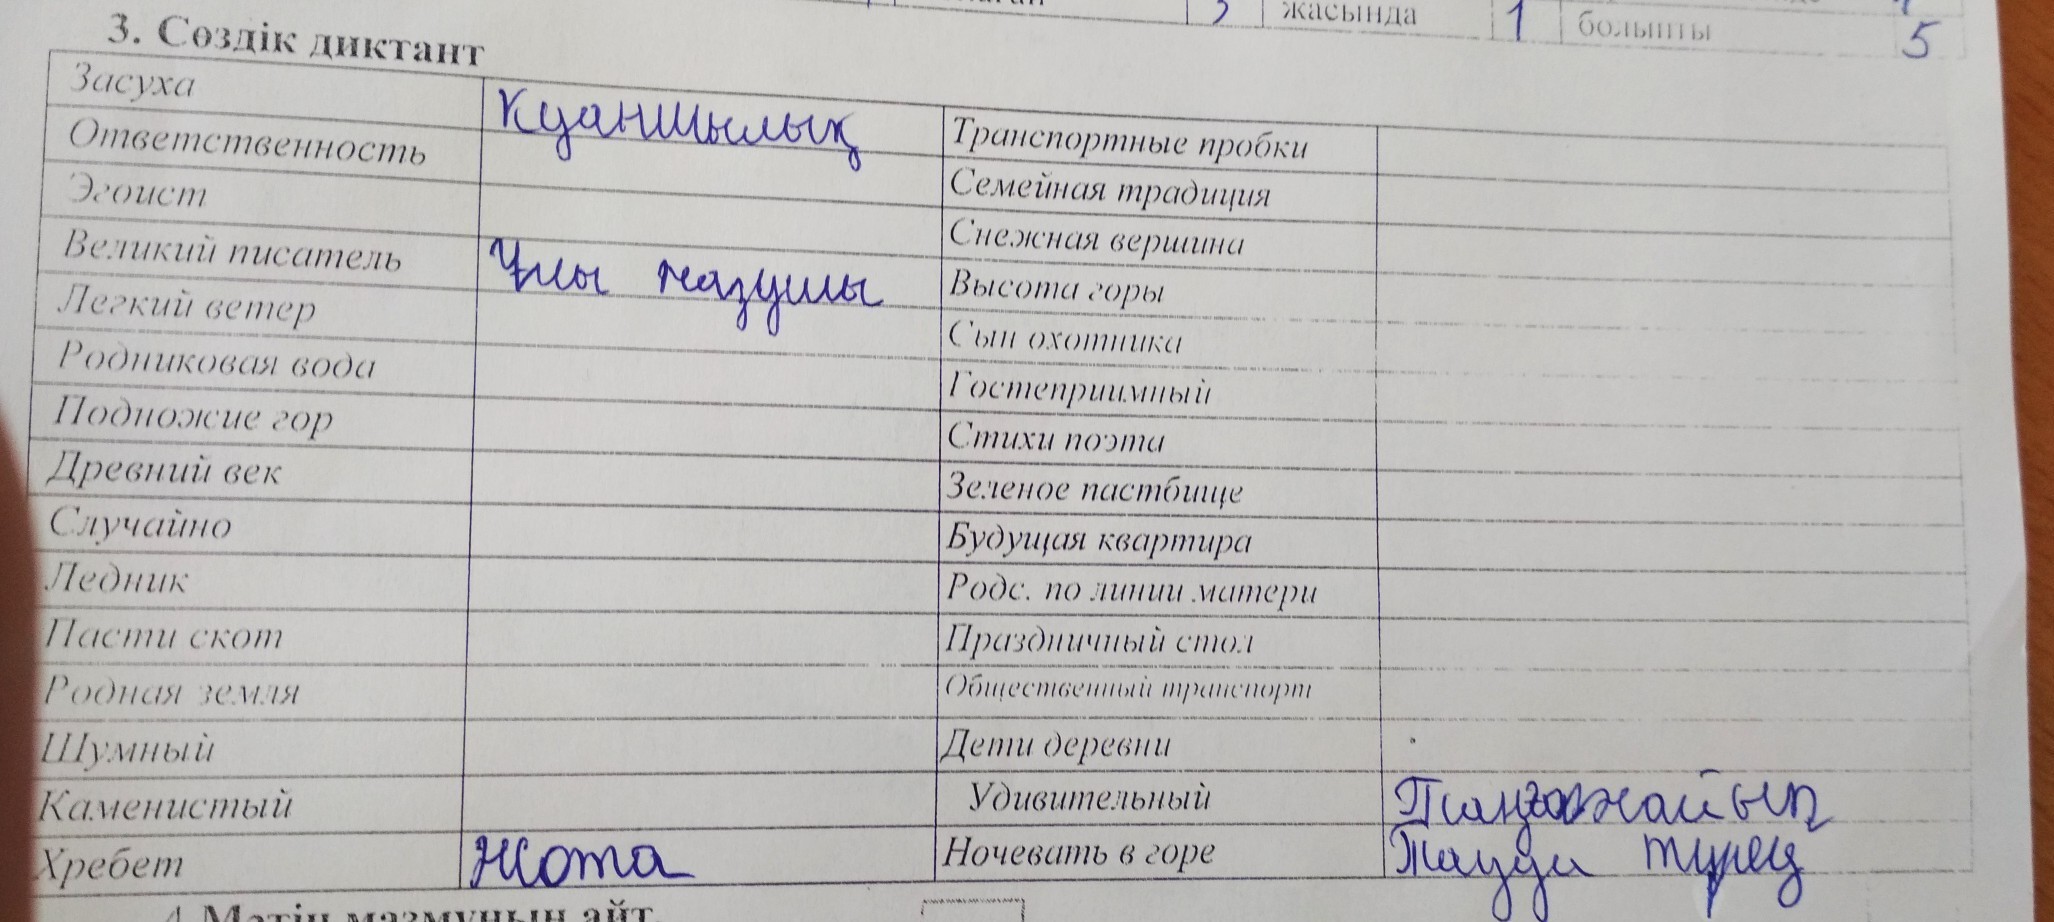 жасында 1 болыпты 5
3. Сөздік диктант
Засуха Куаншылық Транспортные пробки
Ответственность Семейная традиция
Эгоист Снежная вершина
Великий писатель Ұлы жазушы Высота горы
Легкий ветер Сын охотника
Родниковая вода Гостеприимный
Подножие гор Стихи поэта
Древний век Зеленое пастбище
Случайно Будущая квартира
Ледник Родс. по линии матери
Пасти скот Праздничный стол
Родная земля Общественный транспорт
Шумный Дети деревни
Каменистый Удивительный Таңғажайып
Хребет Жота Ночевать в горе
4 Мәтін мазмұнын айт.